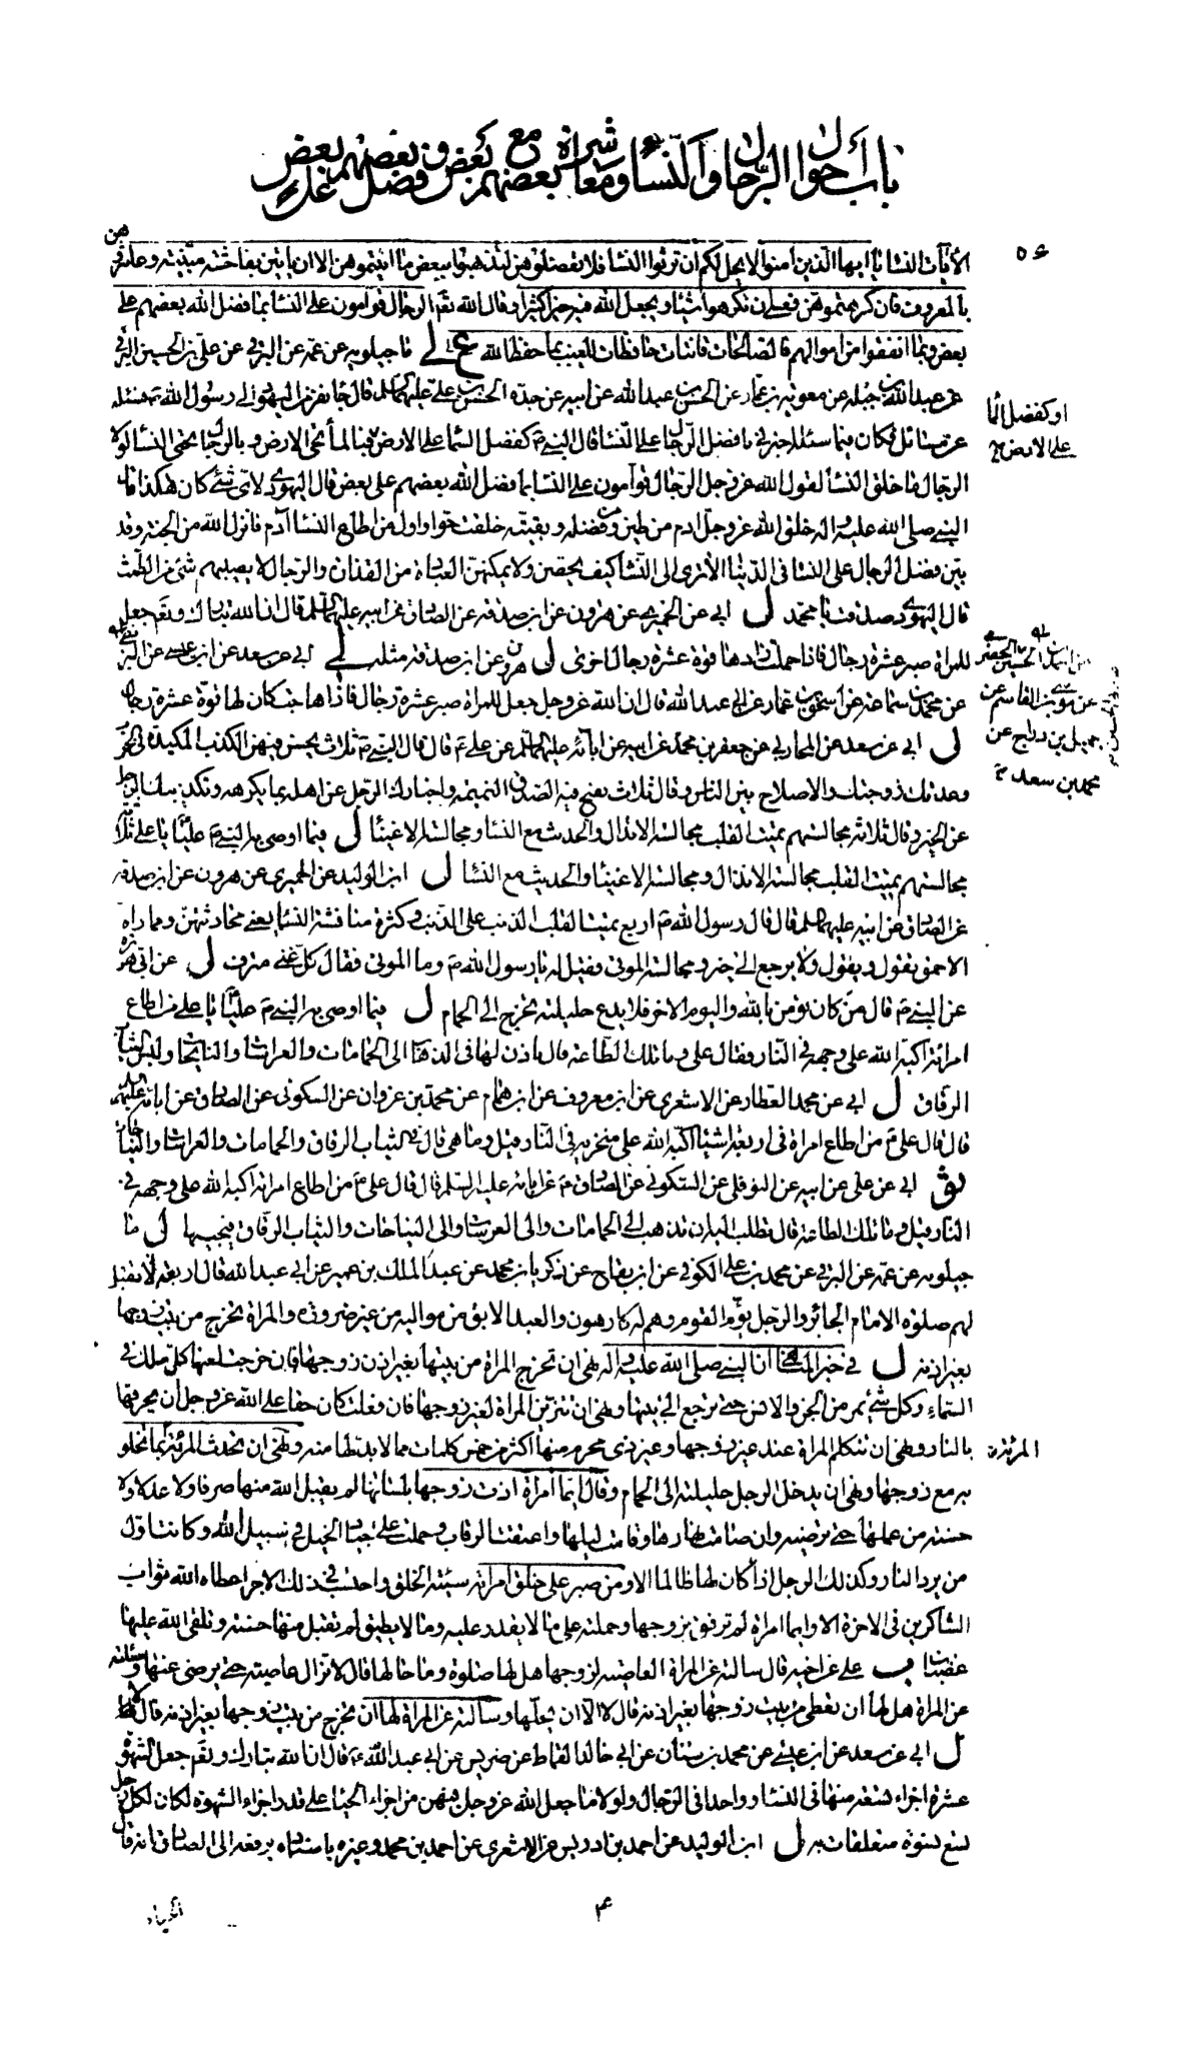 باب أحوال الرجال والنساء ومعاشرة بعضهم مع بعض وفضل بعضهم على بعض
الآيات النساء يا ايها الذين آمنوا لا يحل لكم ان ترثوا النساء كرها ولا تعضلوهن لتذهبوا ببعض ما آتيتموهن الا ان يأتين بفاحشة مبينة وعاشروهن
بالمعروف فان كرهتموهن فعسى ان تكرهوا شيئا ويجعل الله فيه خيرا كثيرا وقال الله تع الرجال قوامون على النساء بما فضل الله بعضهم على
بعض وبما انفقوا من اموالهم فالصالحات قانتات حافظات للغيب بما حفظ الله ع لي ما جيلويه عن عمه عن البرقي عن علي بن الحسين البرقي
عن عبد الله بن جبلة عن معوية بن عمار عن الحسن بن عبد الله عن ابيه عن جده الحسن بن علي عليهما السلم قال جاء نفر من اليهود الى رسول الله ص فسئله
عن مسائل فكان فيما سئله اخبرني ما فضل الرجال على النساء قال النبي ص كفضل السماء على الارض فبالماء تحيى الارض وبالرجال تحيى النساء لولا
الرجال ما خلق النساء لقول الله عز وجل الرجال قوامون على النساء بما فضل الله بعضهم على بعض قال اليهودي لاي شئ كان هكذا قال
النبي صلى الله عليه واله خلق الله عز وجل ادم من طين ومن فضله وبقيته خلقت حوا واول من اطاع النساء آدم فانزل الله من الجنة وقد
بين فضل الرجال على النساء في الدنيا الا ترى الى النساء كيف يحضن ولا يمكنهن العبادة من القذارة والرجال لا يصيبهم شئ من الطمث
قال اليهودي صدقت يا محمد ل ابي عن الحميري عن هرون عن ابن صدقة عن الصادق عن ابيه عليهما السلم قال ان الله تبارك وتع جعل
للمراة صبر عشرة رجال فاذا حملت زادها قوة عشرة رجال اخرى لي هرون عن ابن صدقة مثله ل ابي عن سعد عن ابن عيسى عن البزنطي
عن محمد بن سماعة عن اسحق بن عمار عن ابي عبد الله قال ان الله عز وجل جعل للمراة صبر عشرة رجال فاذا هاجت كان لها قوة عشرة رجال
ل ابي عن سعد عن المحاربي عن جعفر بن محمد عن ابيه عن ابائه عليهم السلم عن علي ع قال قال النبي ص ثلاث يحسن فيهن الكذب المكيدة في الحرب
وعدتك زوجتك والاصلاح بين الناس وقال ثلاث يقبح فيه الصدق النميمة واخبارك الرجل عن اهله بما يكرهه وتكذيبك الرجل
عن الخبر وقال ثلاثة مجالستهم تميت القلب مجالسة الانذال والحديث مع النساء ومجالسة الاغنياء ل فيما اوصى به النبي ص عليا يا علي ثلاثة
مجالستهم تميت القلب مجالسة الانذال ومجالسة الاغنياء والحديث مع النساء ل ابن الوليد عن الحميري عن هرون عن ابن صدقة
عن الصادق عن ابيه عليهما السلم قال قال رسول الله ص اربع يمتن القلب الذنب على الذنب وكثرة مناقشة النساء يعني محادثتهن ومماراة
الاحمق تقول ويقول ولا يرجع الى خير ومجالسة الموتى فقيل له يا رسول الله ص وما الموتى فقال كل غني مترف ل عن ابي هريرة
عن النبي ص قال من كان يؤمن بالله واليوم الاخر فلا يدع حليلته تخرج الى الحمام ل فيما اوصى به النبي ص عليا يا علي من اطاع
امراته اكبه الله على وجهه في النار فقال علي وما تلك الطاعة قال ياذن لها في الذهاب الى الحمامات والعراسات والنايحات ولبس الثياب
الرقاق ل ابي عن محمد العطار عن الاشعري عن ابن معروف عن ابن همام عن محمد بن غزوان عن السكوني عن الصادق عن ابائه عليهم
قال قال علي ع من اطاع امراة في اربعة اشياء اكبه الله على منخريه في النار قيل وما هي قال في الثياب الرقاق والحمامات والعراسات والنياحات
ثو ابي عن علي عن ابيه عن النوفلي عن السكوني عن الصادق ع عن ابائه عليه السلم قال قال علي ع من اطاع امراته اكبه الله على وجهه في
النار قيل وما تلك الطاعة قال تطلب اليه ان تذهب الى الحمامات والى العرسات والى النياحات والثياب الرقاق فيجيبها ل ما
جيلويه عن عمه عن البرقي عن محمد بن علي الكوفي عن ابن بقاح عن زكريا بن محمد عن عبد الملك بن عمير عن ابي عبد الله قال اربعة لا تقبل
لهم صلوة الامام الجائر والرجل يؤم القوم وهم له كارهون والعبد الابق من مواليه من غير ضرورة والمراة تخرج من بيت زوجها
بغير اذنه ل في خبر المناهي ان النبي صلى الله عليه واله نهى ان تخرج المراة من بيتها بغير اذن زوجها فان خرجت لعنها كل ملك في
السماء وكل شئ تمر من الجن والانس حتى ترجع الى بيتها ونهى ان تتزين المراة لغير زوجها فان فعلت كان حقا على الله عز وجل ان يحرقها
بالنار ونهى ان تتكلم المراة عند غير زوجها وغير ذي محرم منها اكثر من خمس كلمات مما لا بد لها منه ونهى ان تحدث المرئة بما تخلو
به مع زوجها ونهى ان يدخل الرجل حليلته الى الحمام وقال ايما امراة اذت زوجها بلسانها لم يقبل الله منها صرفا ولا عدلا ولا
حسنة من عملها حتى ترضيه وان صامت نهارها وقامت ليلها واعتقت الرقاب وحملت على جياد الخيل في سبيل الله وكانت اول
من يرد النار وكذلك الرجل اذا كان لها ظالما الا ومن صبر على خلق امراته سيئة الخلق واحتسب في ذلك الاجر اعطاه الله ثواب
الشاكرين في الاخرة الا وايما امراة لم ترفق بزوجها وحملته على ما لا يقدر عليه وما لا يطيق لم تقبل منها حسنة وتلقى الله عليها
غضبان ب علي عن اخيه قال سالته عن المراة العاصية لزوجها هل لها صلوة وما حالها قال لا تزال عاصية حتى يرضى عنها وسئلته
عن المراة هل لها ان تعطي من بيت زوجها بغير اذنه قال لا الا ان يحلها وسالته عن المراة لها ان تخرج من بيت زوجها بغير اذنه قال لا
ل ابي عن سعد عن ابن عيسى عن محمد بن سنان عن ابي خالد القماط عن ضريس عن ابي عبد الله ع قال ان الله تبارك وتع جعل الشهوة
عشرة اجزاء تسعة منها في النساء وواحدا في الرجال ولولا ما جعل الله عز وجل فيهن من اجزاء الحياء على قدر اجزاء الشهوة لكان لكل رجل
تسع نسوة متعلقات به ل ابن الوليد عن احمد بن ادريس عن الاشعري عن احمد بن محمد وغيره باسناده يرفعه الى الصادق انه قال
٥٤
او كفضل الماء
على الارض خ
جميل بن دراج عن
محمد بن سعد
المرئة
٣
الحياء